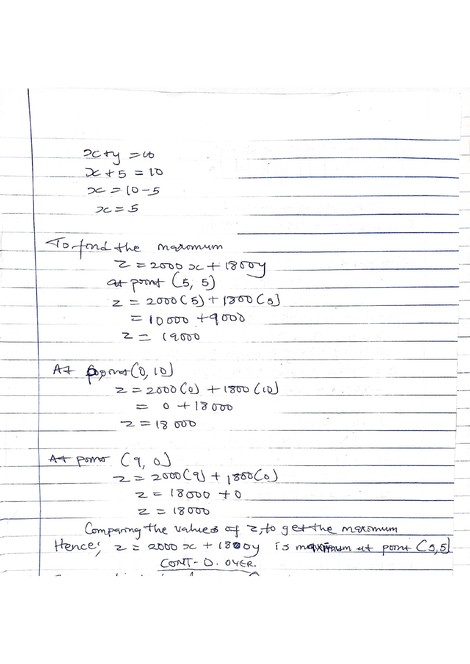 x+y = 10
x + 5 = 10
x = 10-5
x = 5
To find the maximum
Z = 2000 x + 1800y
at point (5, 5)
Z = 2000(5) + 1800(5)
= 10000 + 9000
Z = 19000
At point (0, 10)
Z = 2000(0) + 1800(10)
= 0 + 18000
Z = 18000
At point (9, 0)
Z = 2000(9) + 1800(0)
Z = 18000 + 0
Z = 18000
Comparing the values of Z, to get the maximum
Hence; Z = 2000 x + 1800y is maximum at point (5,5)
CONT-D. OVER